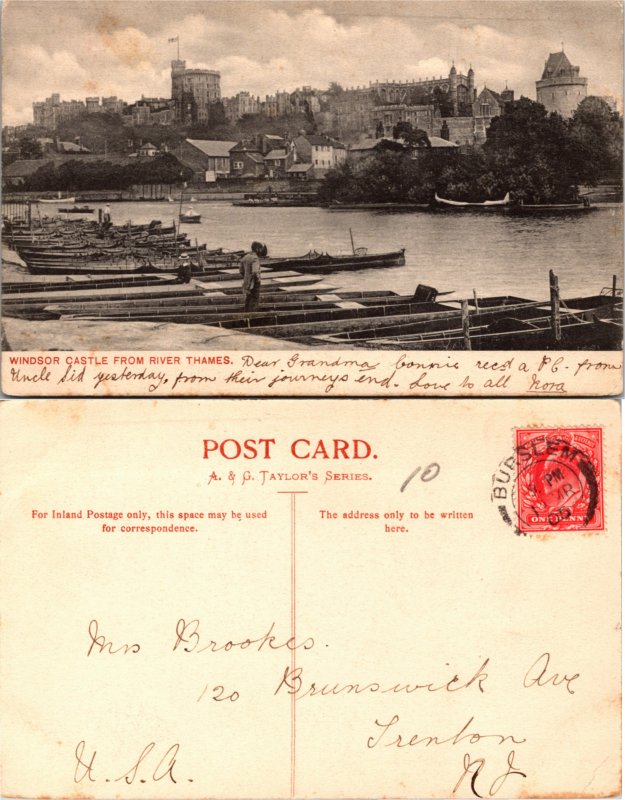 WINDSOR CASTLE FROM RIVER THAMES. Dear Grandma Connie recs'd a P.C. from
Uncle Sid yesterday, from their journeys end. Love to all Nora
POST CARD.
A. & G. TAYLOR'S SERIES.
10
For Inland Postage only, this space may be used
for correspondence.
The address only to be written
here.
BURSLEM
PM
ONE PENNY
Mrs Brookes.
120 Brunswick Ave
Trenton
N J
U.S.A.